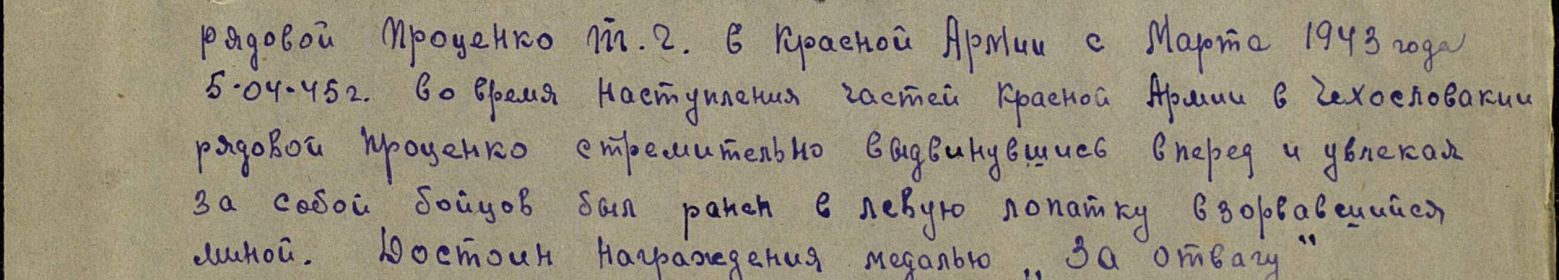 рядовой Проценко Т.Г. в Красной Армии с Марта 1943 года
5-04-45г. во время наступления частей Красной Армии в Чехословакии
рядовой Проценко стремительно выдвинувшись вперед и увлекая
за собой бойцов был ранен в левую лопатку взорвавшийся
миной. Достоин награждения медалью „За отвагу"